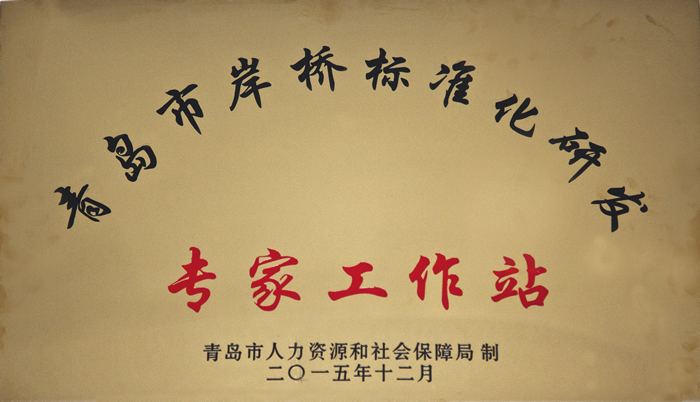 青岛市岸桥标准化研发
专家工作站
青岛市人力资源和社会保障局 制
二〇一五年十二月